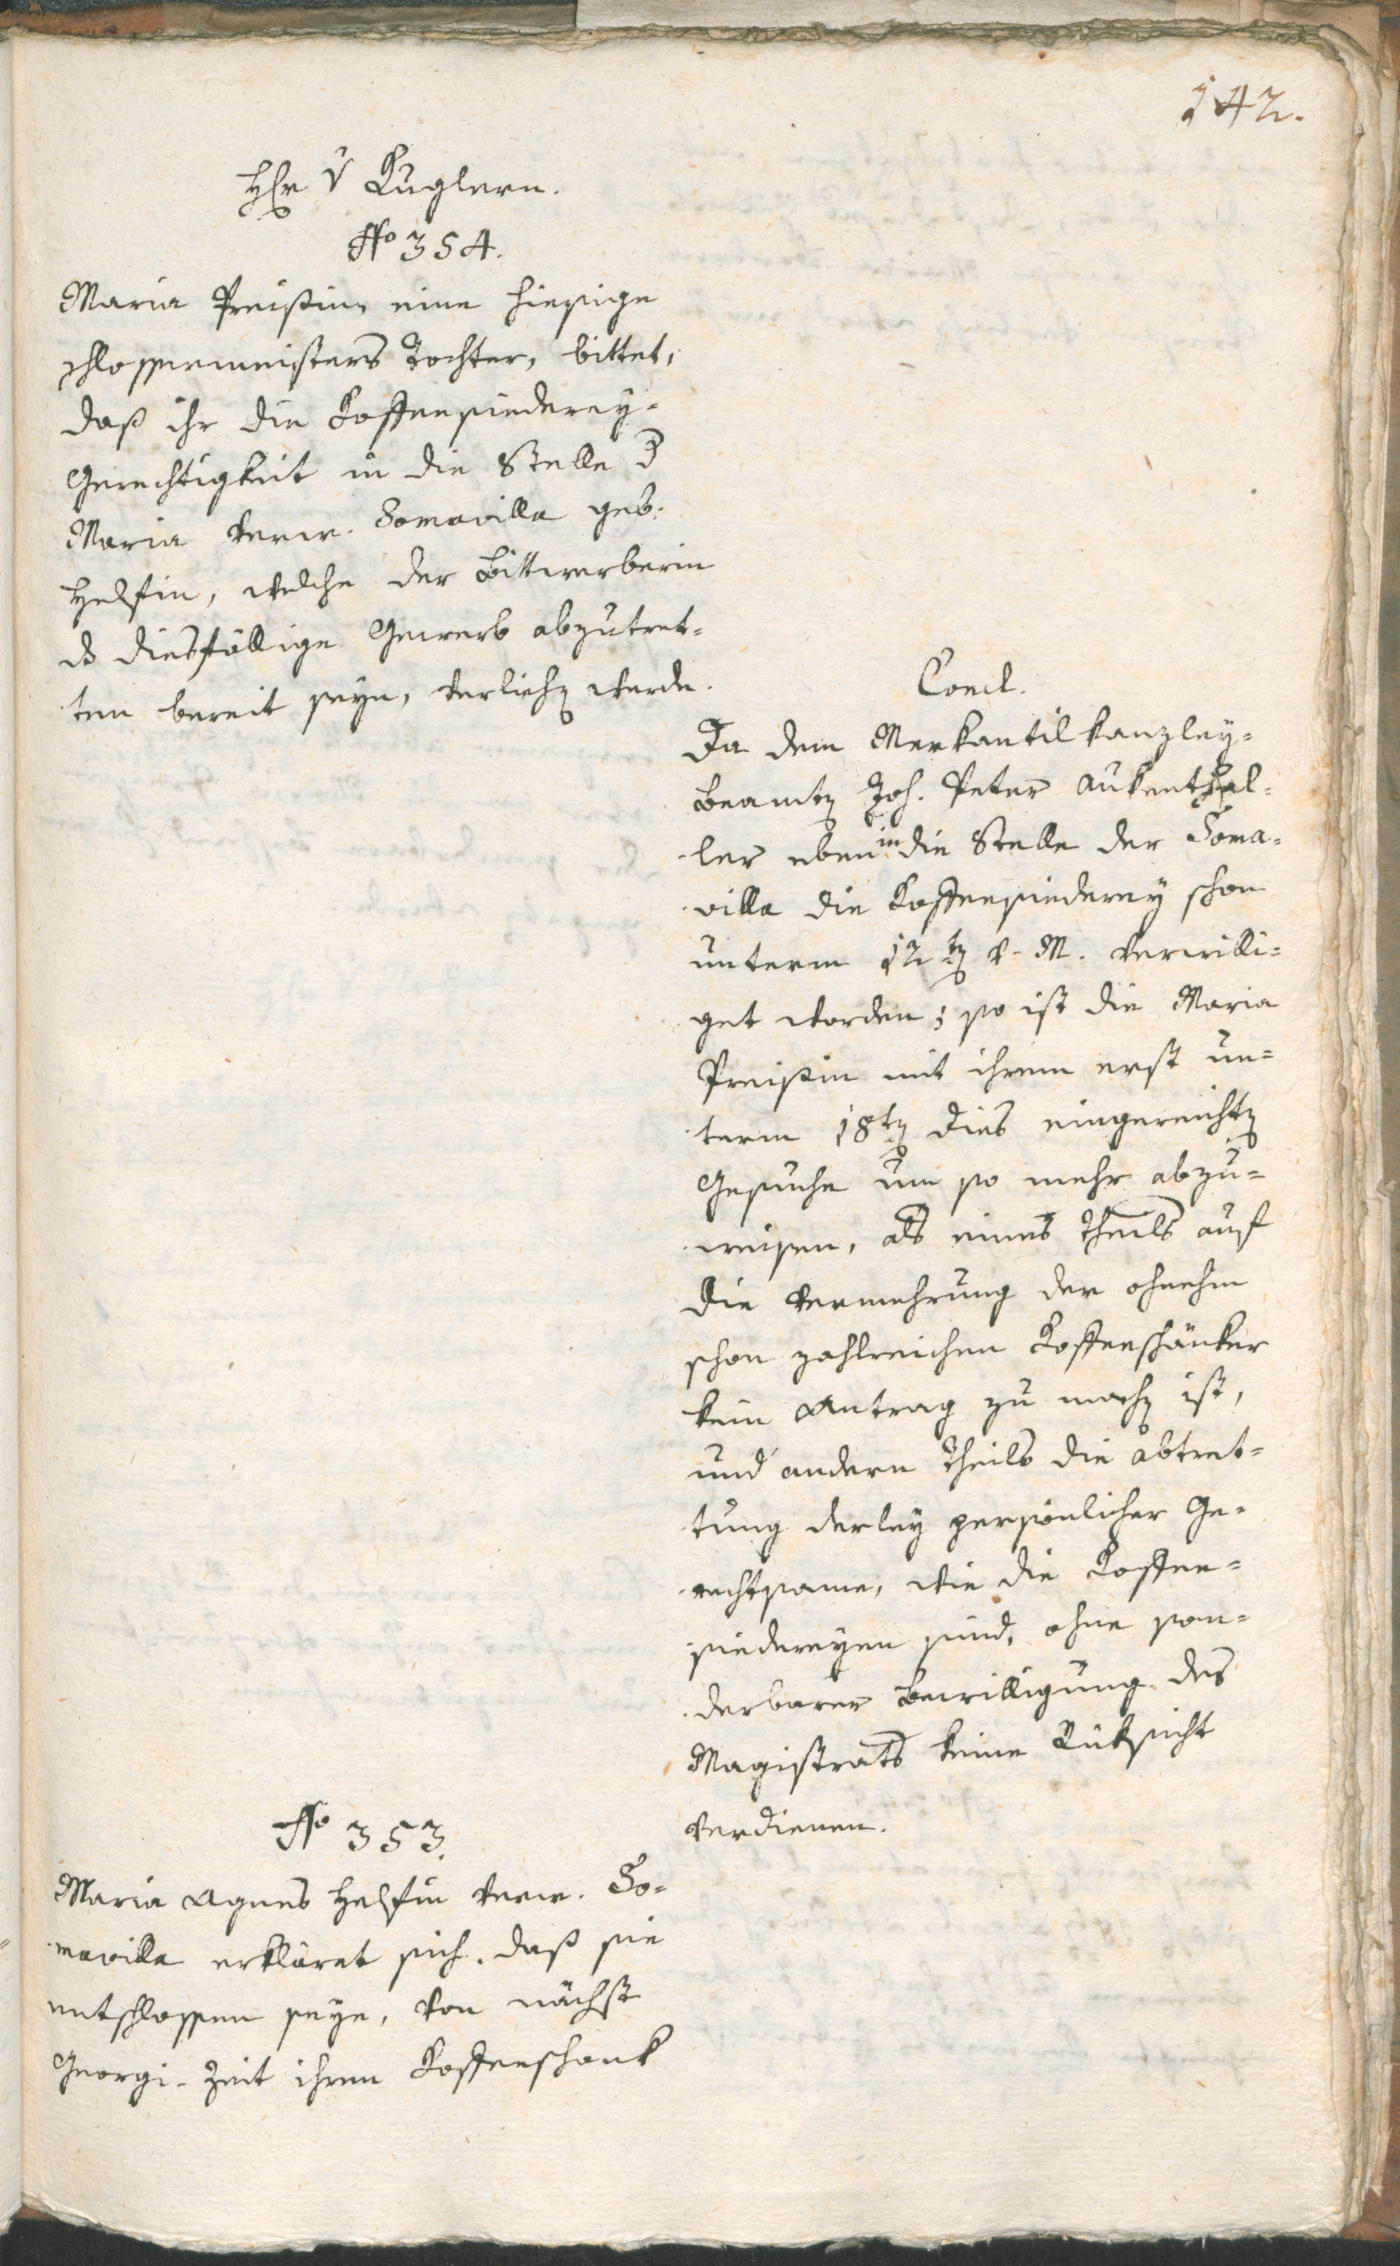 142.
H(er)r v Kuglern.
No 354.
Maria Preißin eine hiesige
schlossermeisters Tochter, bittet,
daß ihr die Koffeesiederey-
Gerechtigkeit in die Stelle d
Maria verw. Somavilla geb.
Helfin, welche der Bittwerberin
ds diesfällige Gewerb abzutret-
ten bereit seye, verliehen werde.
Concl.
Da dem Merkantilkanzley-
beamten Joh. Peter Aukenthal-
ler eben in die Stelle der Soma-
villa die Koffeesiederey schon
unterm 12ten v. M. verwilli-
get worden; so ist die Maria
Preißin mit ihrem erst un-
term 18ten dies eingereichten
Gesuche um so mehr abzu-
weisen, als eines Theils auf
die vermehrung der ohnehin
schon zahlreichen Koffeeschänker
kein Antrag zu machen ist,
und andern Theils die abtret-
tung derley persönlicher Ge-
rechtsame, wie die Koffee-
siedereyen sind, ohne son-
derbarer bewilligung des
Magistrats keine Rüksicht
verdienen.
No 353.
Maria Agnes Helfin verw. So-
mavilla erkläret sich, daß sie
entschlossen seye, von nächst
Georgi-Zeit ihren Koffeeschank